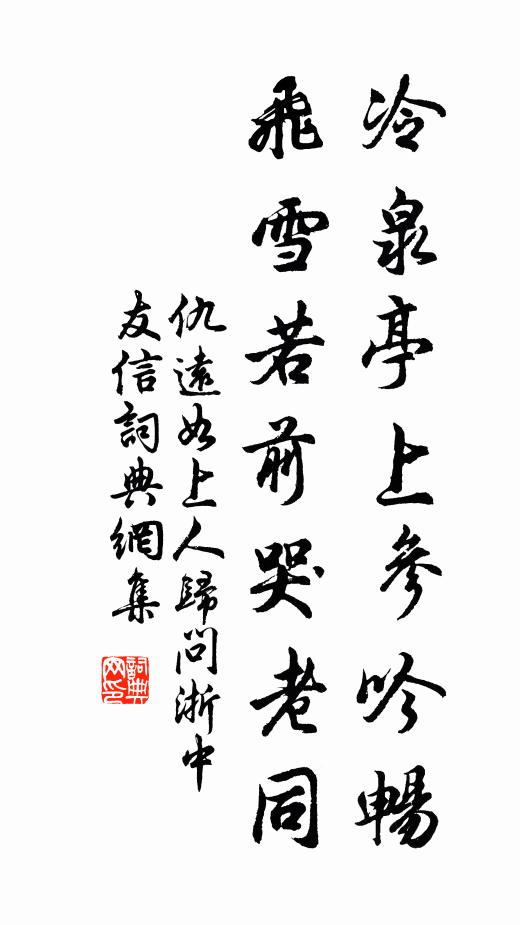 冷泉亭上參吟暢
飛雪若前哭老同
仇遠如上人歸問浙中
友信詞典網集
詞典
网印